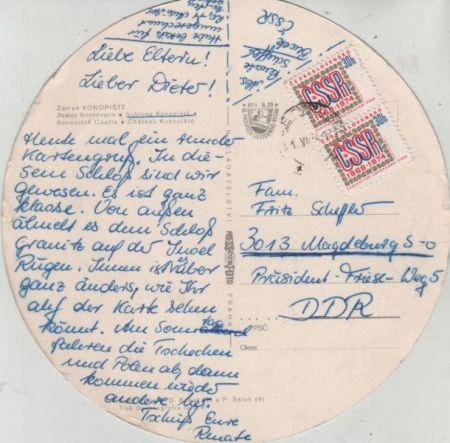 Abs.
Renate
Scheffler
ČSSR
Liebe Eltern!
Lieber Dieter!
Zámek KONOPIŠTĚ
Замок Конопиште • Schloss Konopiště •
Konopiště Castle • Château Konopiště
Heute mal ein runder
Kartengruß. In die-
sem Schloß sind wir
gewesen. Es ist ganz
klasse. Von außen
ähnelt es dem Schloß
Granitz auf der Insel
Rügen. Innen ist aber
ganz anders, wie Ihr
auf der Karte sehen
könnt. Am Sonntag
fahren die Tschechen
und Polen ab, dann
kommen wieder
andere
Tschüß Eure
Renate
NAKLADATELSTVÍ
PRESSFOTO
PRAHA
Kčs 0,20
ČESKOSLOVENSKO
30h
ČSSR
1969-1974
ČESKOSLOVENSKO
30h
ČSSR
1969-1974
Fam.
Fritz Scheffler
3013 Magdeburg S-O
Präsident-Friese-Weg 5
DDR
PSČ
Okres
P. Šálek (4)
Tisk